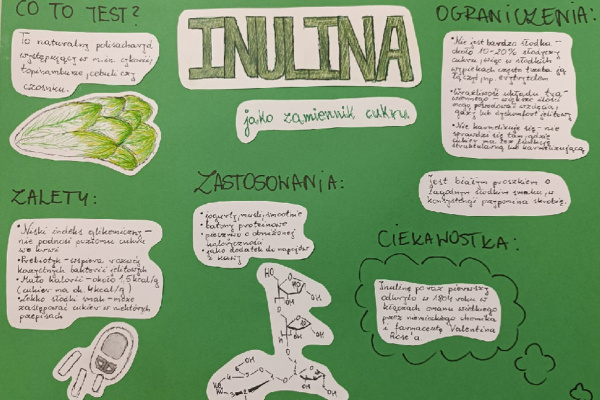 CO TO TEST?
To naturalny polisacharyd
występujący w m.in. cykorii,
topinamburze, cebuli czy
czosnku.
INULINA
jako zamiennik cukru
OGRANICZENIA:
• Nie jest bardzo słodka -
około 10-20% słodyczy
cukru, więc w słodkich
wypiekach często trzeba ją
łączyć, np. z erytrytolem
• Wrażliwość układu tra-
wiennego - większe ilości
mogą powodować wzdęcia,
gazy lub dyskomfort jelitowy
• Nie karmelizuje się - nie
sprawdzi się tam, gdzie
cukier ma też funkcję
strukturalną lub karmelizującą
Jest białym proszkiem o
łagodnym słodkim smaku, w
konsystencji przypomina skrobię.
ZALETY:
• Niski indeks glikemiczny -
nie podnosi poziomu cukru
we krwi
• Prebiotyk - wspiera rozwój
korzystnych bakterii jelitowych
• Mało kalorii - około 1,5 kcal/g
(cukier ma ok 4kcal/g)
• Lekko słodki smak - może
zastępować cukier w niektórych
przepisach
ZASTOSOWANIA:
• jogurty, musli, smoothie
• batony proteinowe
• pieczywo o obniżonej
kaloryczności
• jako dodatek do napojów
i kawy
CIEKAWOSTKA:
Inulinę po raz pierwszy
odkryto w 1804 roku w
kłączach omanu wielkiego
przez niemieckiego chemika
i farmaceutę Valentina
Rose'a.